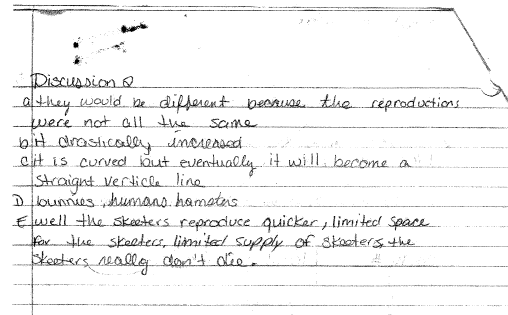 Discussion Q
a they would be different because the reproductions
were not all the same
b it drastically increased
c it is curved but eventually it will become a
straight verticle line
D bunnies, humans, hamsters
E well the skeeters reproduce quicker, limited space
for the skeeters, limited supply of skeeters, the
skeeters really don't die.